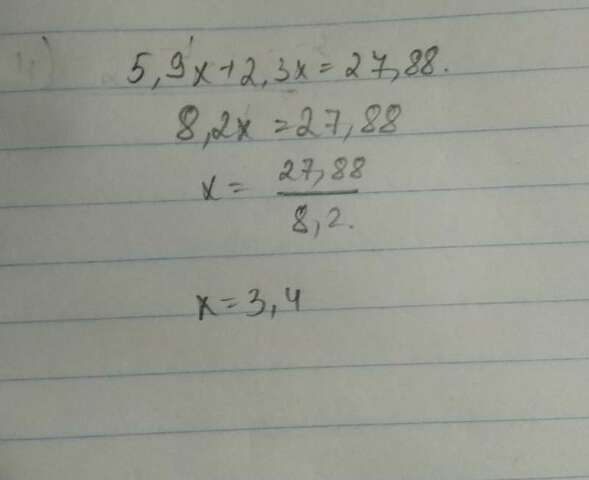 5,9x+2,3x=27,88.
8,2x=27,88
x= 27,88
8,2.
x=3,4